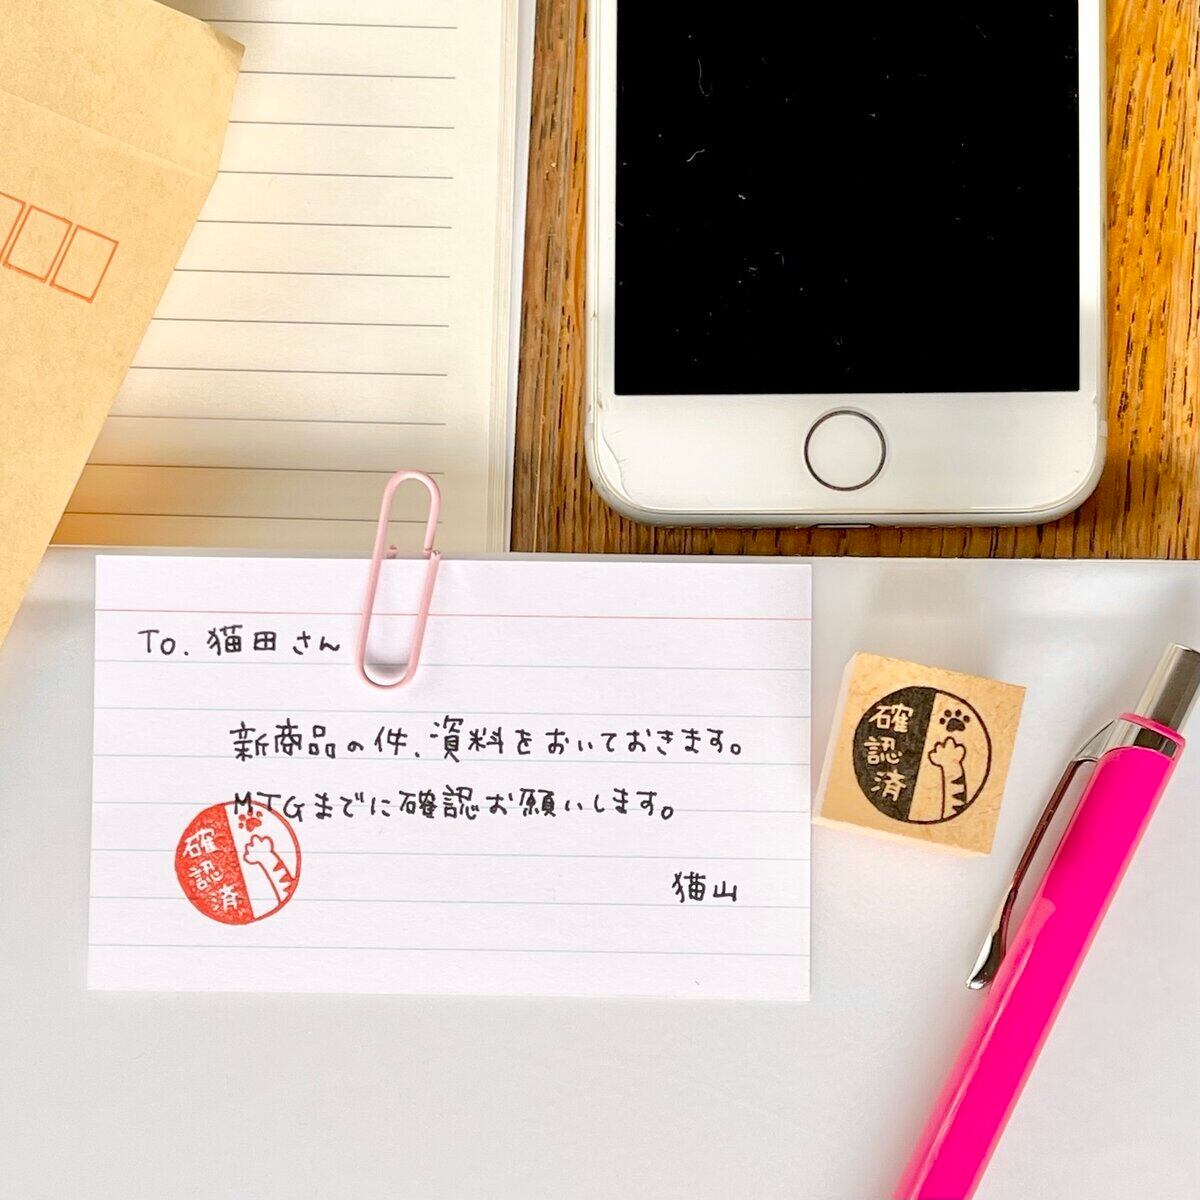 To. 猫田さん
新商品の件、資料をおいておきます。
MTGまでに確認お願いします。
猫山
確
認
済
確
認
済